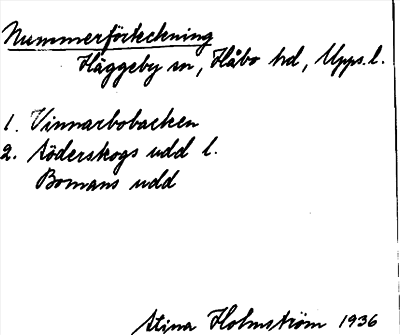 Nummerförteckning
Häggeby sn, Håbo hd, Upps.l.
1. Vinnarbobacken
2. Söderskogs udd l.
Bomans udd
Stina Holmström 1936